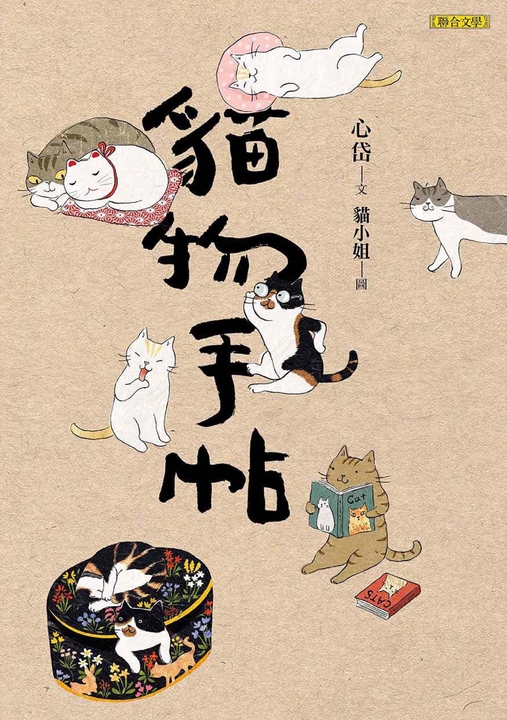 聯合文學
貓物手帖
心岱—文
貓小姐—圖
Cat
CATS